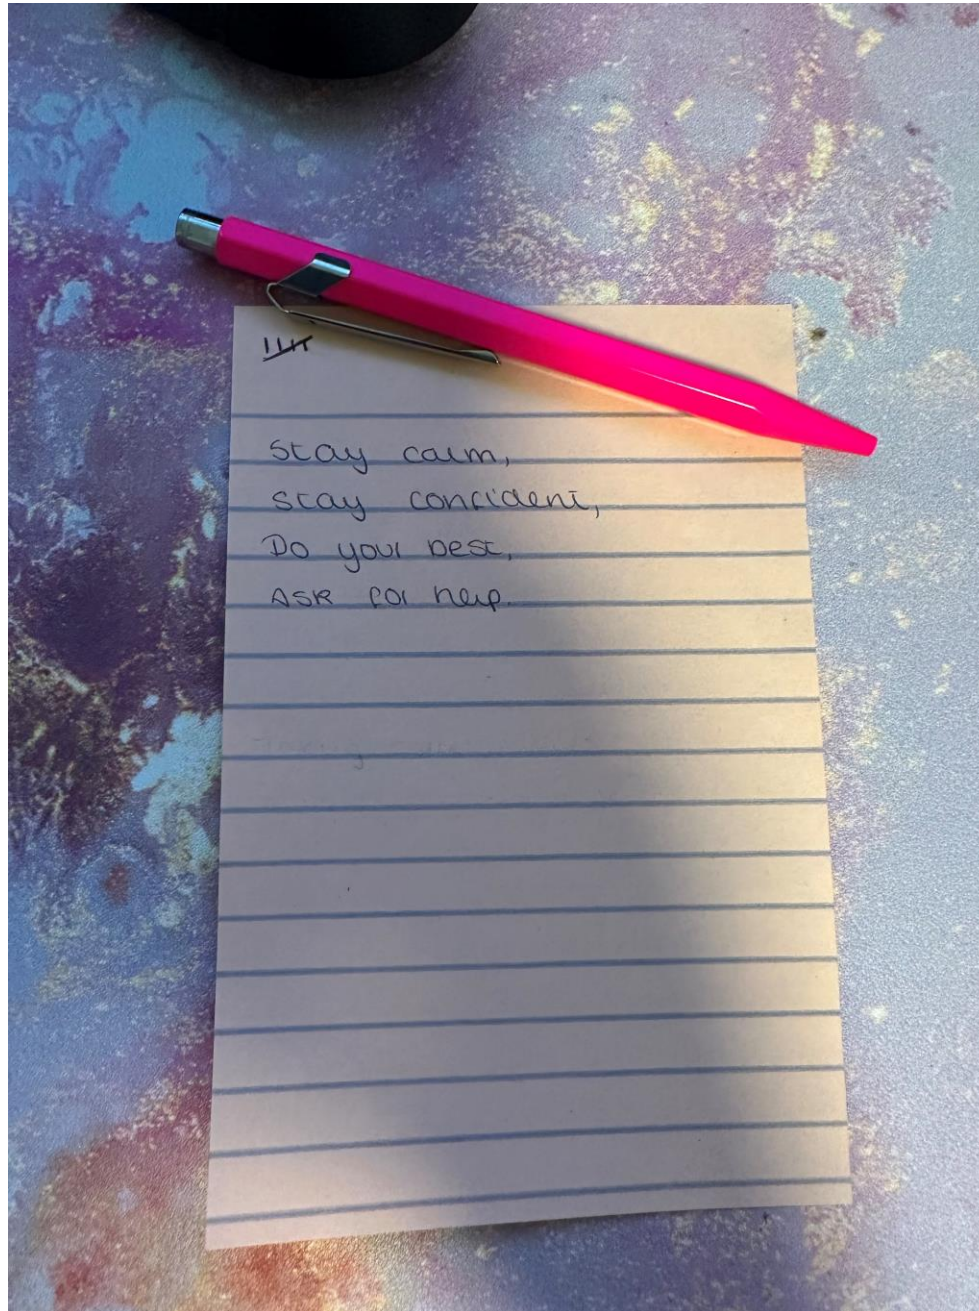 Stay calm,
Stay confident,
Do your best,
Ask for help.